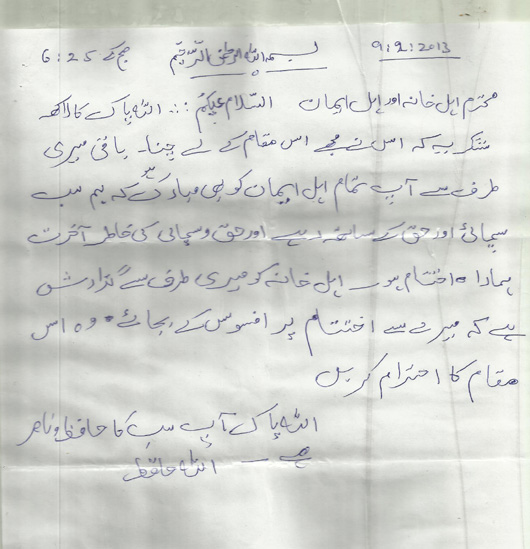 9:2:2013
بسم اللہ الرحمٰن الرحیم
صبح کے 6:25
محترم اہل خانہ اور اہل ایمان السلام علیکم ... اللہ پاک کا لاکھ
شکر ہے کہ اس نے مجھے اس مقام کے لے چنا۔ باقی میری
طرف سے آپ تمام اہل ایمان کو بھی مبارک ہو کہ ہم سب
سچائی اور حق کے ساتھ رہے اور حق و سچائی کی خاطر آخرت
ہمارا اختتام ہو۔ اہل خانہ کو میری طرف سے گذارش
ہے کہ میرے سے اختتام پر افسوس کے بجائے وہ اس
مقام کا احترام کریں
اللہ پاک آپ سب کا حافظ و ناصر
ہے – اللہ حافظ